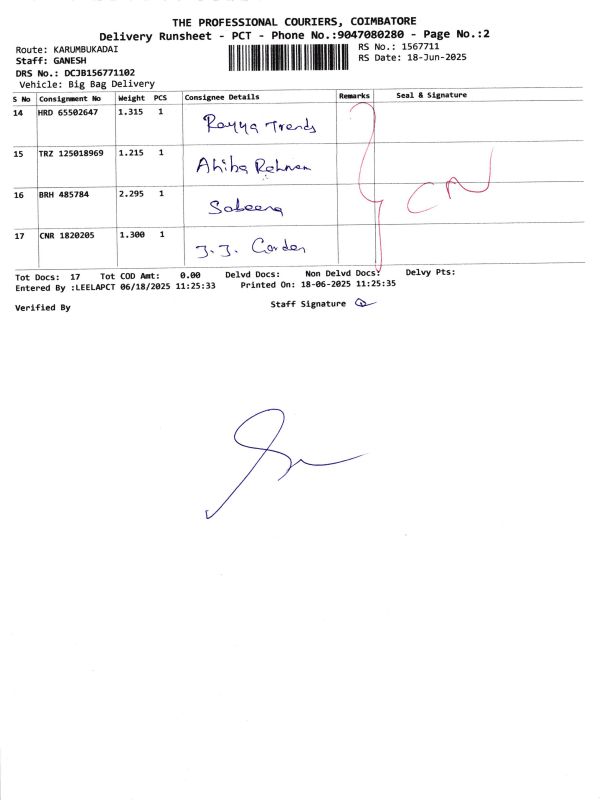 THE PROFESSIONAL COURIERS, COIMBATORE
Delivery Runsheet - PCT - Phone No.:9047080280 - Page No.:2
Route: KARUMBUKADAI
RS No.: 1567711
Staff: GANESH
RS Date: 18-Jun-2025
DRS No.: DCJB156771102
Vehicle: Big Bag Delivery
S No Consignment No Weight PCS Consignee Details Remarks Seal & Signature
14 HRD 65502647 1.315 1 Rayya Trends
15 TRZ 125018969 1.215 1 Ahiba Rehman
16 BRH 485784 2.295 1 Sabeena
17 CNR 1820205 1.300 1 J.J. Garden
CN
Tot Docs: 17 Tot COD Amt: 0.00 Delvd Docs: Non Delvd Docs: Delvy Pts:
Entered By :LEELAPCT 06/18/2025 11:25:33 Printed On: 18-06-2025 11:25:35
Verified By Staff Signature